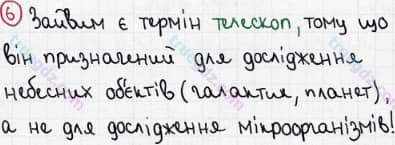 6 Зайвим є термін телескоп, тому що
він призначений для дослідження
небесних об'єктів (галактик, планет),
а не для дослідження мікроорганізмів!